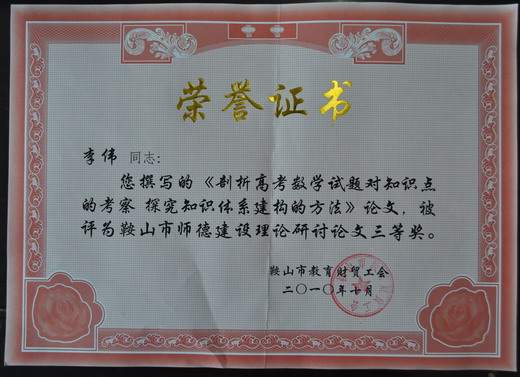 荣誉证书
李伟 同志:
您撰写的《剖析高考数学试题对知识点
的考察 探究知识体系建构的方法》论文,被
评为鞍山市师德建设理论研讨论文三等奖。
鞍山市教育财贸工会
二〇一〇年七月